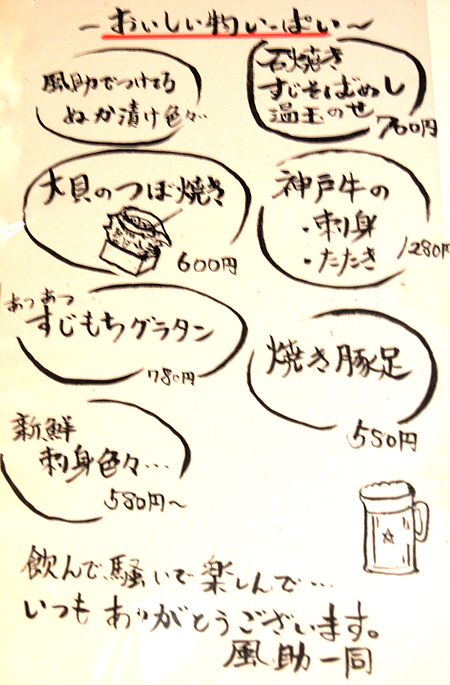 ～おいしい物いっぱい～
風助でつけてる
ぬか漬け色々…
石焼き
すじそばめし
温玉のせ
700円
大貝のつぼ焼き
600円
神戸牛の
・刺身
・たたき
1280円
あつあつ
すじもちグラタン
780円
焼き豚足
580円
新鮮
刺身色々…
580円～
飲んで騒いで楽しんで…
いつもありがとうございます。
風助一同